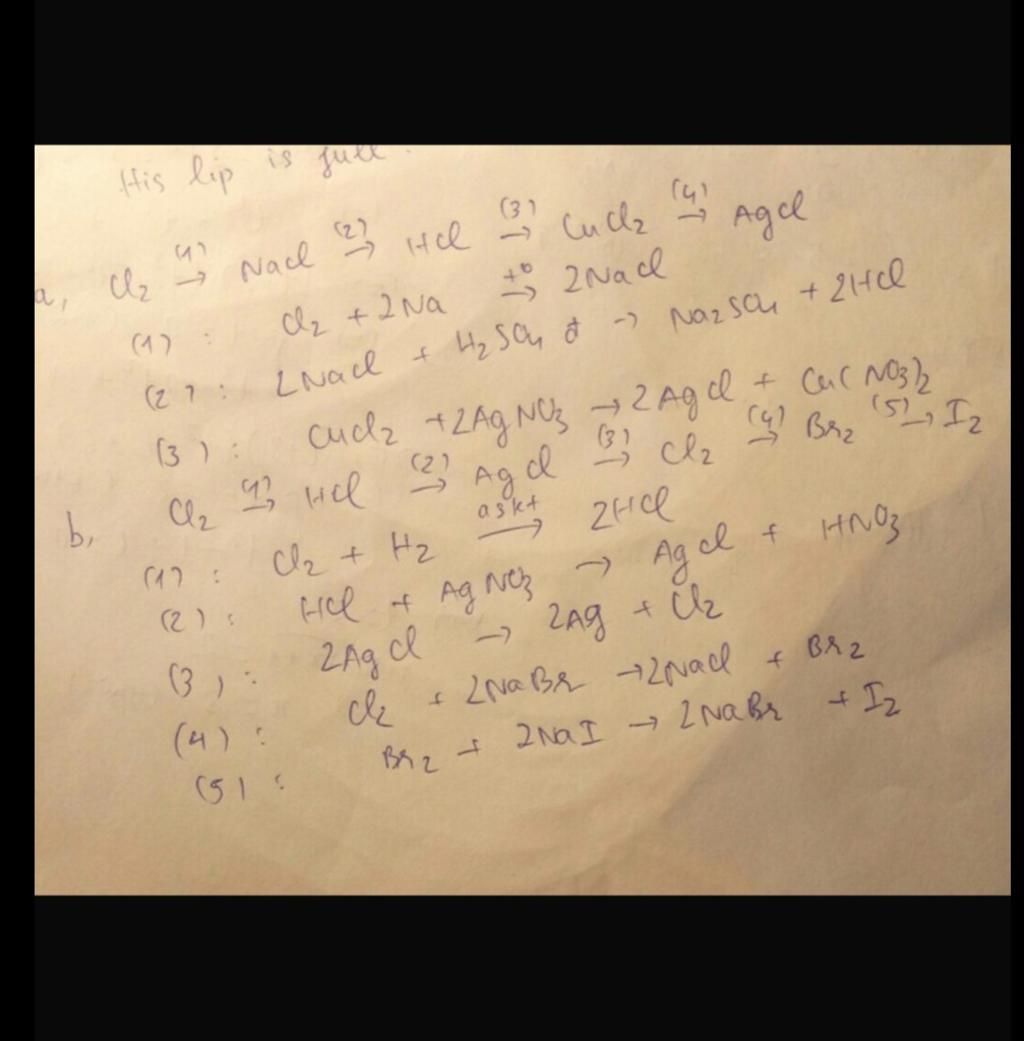 His lip is full.
a, Cl2 (1)→ NaCl (2)→ HCl (3)→ CuCl2 (4)→ AgCl
(1) : Cl2 + 2Na t°→ 2NaCl
(2) : 2NaCl + H2SO4 đ → Na2SO4 + 2HCl
(3) : CuCl2 + 2AgNO3 → 2AgCl + Cu(NO3)2
b, Cl2 (1)→ HCl (2)→ AgCl (3)→ Cl2 (4)→ Br2 (5)→ I2
(1) : Cl2 + H2 askt→ 2HCl
(2) : HCl + AgNO3 → AgCl + HNO3
(3) : 2AgCl → 2Ag + Cl2
(4) : Cl2 + 2NaBr → 2NaCl + Br2
(5) : Br2 + 2NaI → 2NaBr + I2